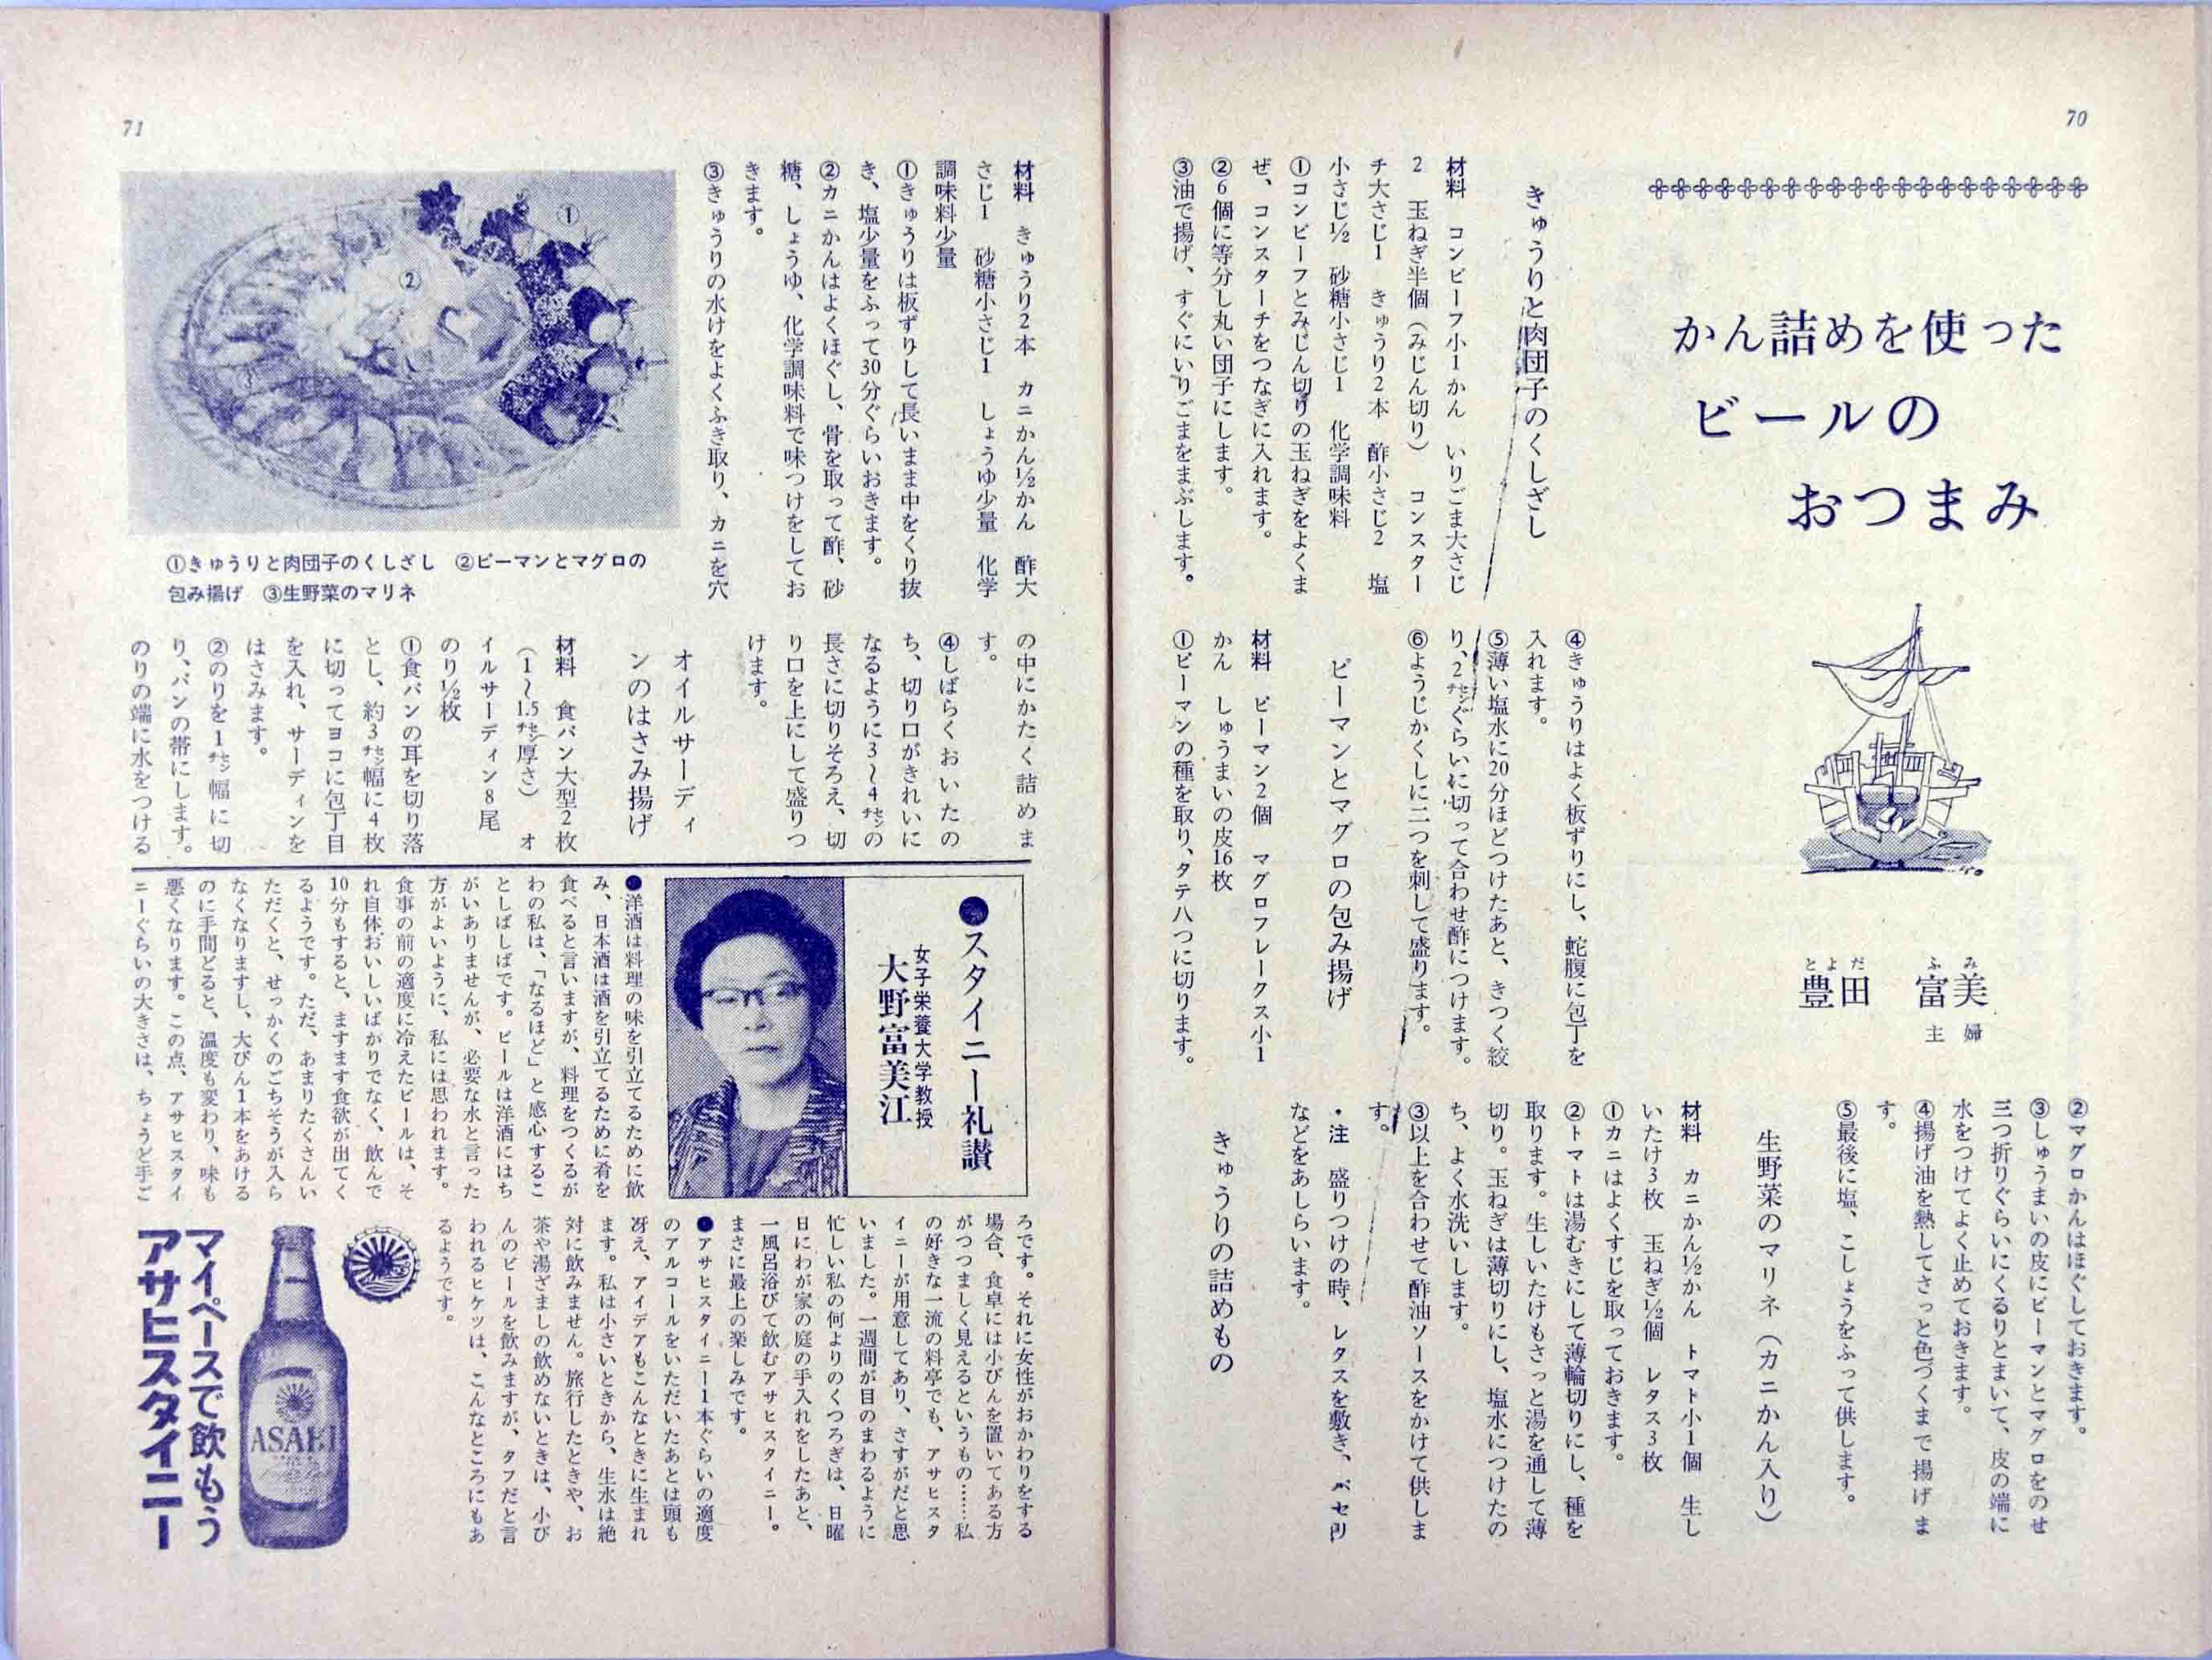 70
かん詰めを使った
ビールの
おつまみ
とよだ ふみ
豊田 富美
主婦
きゅうりと肉団子のくしざし
材料 コンビーフ小1かん いりごま大さじ
2 玉ねぎ半個（みじん切り） コンスター
チ大さじ1 きゅうり2本 酢小さじ2 塩
小さじ½ 砂糖小さじ1 化学調味料
①コンビーフとみじん切りの玉ねぎをよくま
ぜ、コンスターチをつなぎに入れます。
②6個に等分し丸い団子にします。
③油で揚げ、すぐにいりごまをまぶします。
④きゅうりはよく板ずりにし、蛇腹に包丁を
入れます。
⑤薄い塩水に20分ほどつけたあと、きつく絞
り、2㌢ぐらいに切って合わせ酢につけます。
⑥ようじかくしに二つを刺して盛ります。
ピーマンとマグロの包み揚げ
材料 ピーマン2個 マグロフレークス小1
かん しゅうまいの皮16枚
①ピーマンの種を取り、タテ八つに切ります。
②マグロかんはほぐしておきます。
③しゅうまいの皮にピーマンとマグロをのせ
三つ折りぐらいにくるりとまいて、皮の端に
水をつけてよく止めておきます。
④揚げ油を熱してさっと色づくまで揚げま
す。
⑤最後に塩、こしょうをふって供します。
生野菜のマリネ（カニかん入り）
材料 カニかん½かん トマト小1個 生し
いたけ3枚 玉ねぎ½個 レタス3枚
①カニはよくすじを取っておきます。
②トマトは湯むきにして薄輪切りにし、種を
取ります。生しいたけもさっと湯を通して薄
切り。玉ねぎは薄切りにし、塩水につけたの
ち、よく水洗いします。
③以上を合わせて酢油ソースをかけて供しま
す。
・注 盛りつけの時、レタスを敷き、パセリ
などをあしらいます。
きゅうりの詰めもの
71
材料 きゅうり2本 カニかん½かん 酢大
さじ1 砂糖小さじ1 しょうゆ少量 化学
調味料少量
①きゅうりは板ずりして長いまま中をくり抜
き、塩少量をふって30分ぐらいおきます。
②カニかんはよくほぐし、骨を取って酢、砂
糖、しょうゆ、化学調味料で味つけをしてお
きます。
③きゅうりの水けをよくふき取り、カニを穴
①
②
③
①きゅうりと肉団子のくしざし ②ピーマンとマグロの
包み揚げ ③生野菜のマリネ
の中にかたく詰めま
す。
④しばらくおいたの
ち、切り口がきれいに
なるように3〜4㌢の
長さに切りそろえ、切
り口を上にして盛りつ
けます。
オイルサーディ
ンのはさみ揚げ
材料 食パン大型2枚
（1〜1.5㌢厚さ） オ
イルサーディン8尾
のり½枚
①食パンの耳を切り落
とし、約3㌢幅に4枚
に切ってヨコに包丁目
を入れ、サーディンを
はさみます。
②のりを1㌢幅に切
り、パンの帯にします。
のりの端に水をつける
●スタイニー礼讃
女子栄養大学教授
大野富美江
●洋酒は料理の味を引立てるために飲
み、日本酒は酒を引立てるために肴を
食べると言いますが、料理をつくるが
わの私は、「なるほど」と感心するこ
としばしばです。ビールは洋酒にはち
がいありませんが、必要な水と言った
方がよいように、私には思われます。
食事の前の適度に冷えたビールは、そ
れ自体おいしいばかりでなく、飲んで
10分もすると、ますます食欲が出てく
るようです。ただ、あまりたくさんい
ただくと、せっかくのごちそうが入ら
なくなりますし、大びん1本をあける
のに手間どると、温度も変わり、味も
悪くなります。この点、アサヒスタイ
ニーぐらいの大きさは、ちょうど手ご
ろです。それに女性がおかわりをする
場合、食卓には小びんを置いてある方
がつつましく見えるというもの……私
の好きな一流の料亭でも、アサヒスタ
イニーが用意してあり、さすがだと思
いました。一週間が目のまわるように
忙しい私の何よりのくつろぎは、日曜
日にわが家の庭の手入れをしたあと、
一風呂浴びて飲むアサヒスタイニー。
まさに最上の楽しみです。
●アサヒスタイニー1本ぐらいの適度
のアルコールをいただいたあとは頭も
冴え、アイデアもこんなときに生まれ
ます。私は小さいときから、生水は絶
対に飲みません。旅行したときや、お
茶や湯ざましの飲めないときは、小び
んのビールを飲みますが、タフだと言
われるヒケツは、こんなところにもあ
るようです。
ASAHI
マイペースで飲もう
アサヒスタイニー